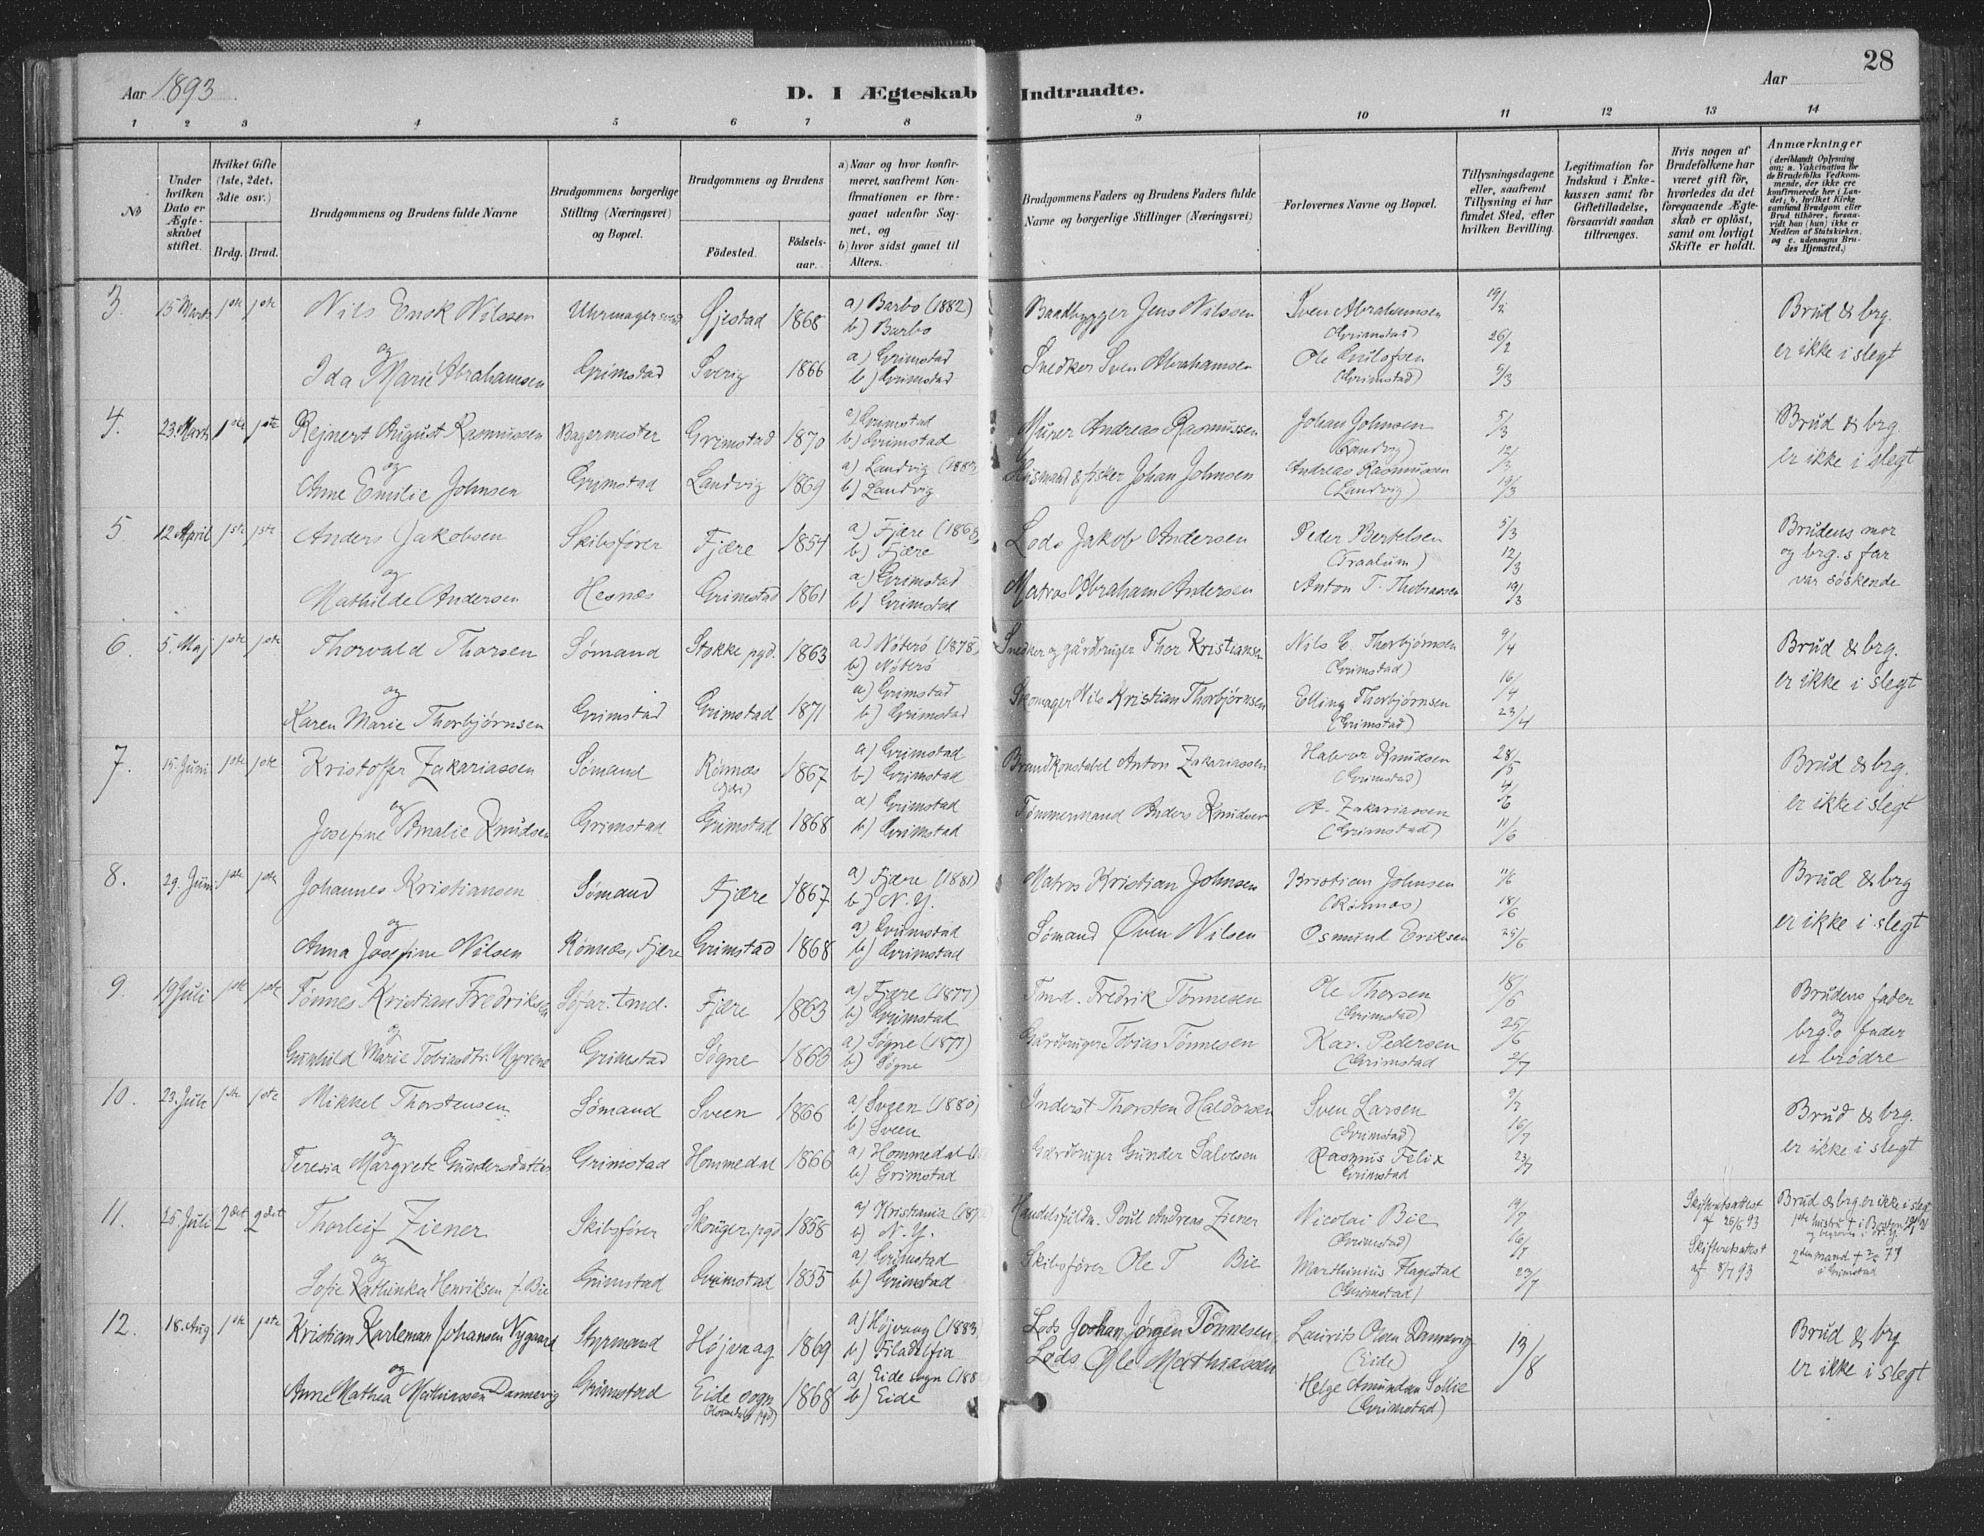 28
Aar 1893
D. I Ægteskab Indtraadte.
Aar
1 2 3 4 5 6 7 8 9 10 11 12 13 14
No
Under hvilken Dato er Ægteskabet stiftet.
Hvilket Gifte (1ste, 2det, 3die osv.)
Brdg. Brud.
Brudgommens og Brudens fulde Navne
Brudgommens borgerlige Stilling (Næringsvei) og Bopæl.
Brudgommens og Brudens
Födested. Födselsaar.
a) Naar og hvor konfirmeret, saafremt Konfirmationen er foregaaet udenfor Sognet, og
b) hvor sidst gaaet til Alters.
Brudgommens Faders og Brudens Faders fulde Navne og borgerlige Stillinger (Næringsvei)
Forlovernes Navne og Bopæl.
Tillysningsdagene eller, saafremt Tillysning ei har fundet Sted, efter hvilken Bevilling.
Legitimation for Indskud i Enkekassen samt for Giftetilladelse, forsaavidt saadan tiltrænges.
Hvis nogen af Brudefolkene har været gift för, hvorledes da det foregaaende Ægteskab er oplöst, samt om lovligt Skifte er holdt.
Anmærkninger
(deriblandt Oplysning om: a. Vaccination for de Brudefolks Vedkommende, der ikke ere konfirmerede her i Landet; b. hvilket Kirkesamfund Brudgom eller Brud tilhörer, forsaavidt han (hun) ikke er Medlem af Statskirken, og c. udensogns Brudes Hjemsted.)
3. 15 Marts 1ste 1ste Nils Enok Nilssen Uhrmagersvend Øjestad 1868 a) Barbo (1882) Baadbygger Jens Nilssen Sven Abrahamsen 19/2 Brud & brg.
b) Barbo (Grimstad) 26/2
og Ida Marie Abrahamsen Grimstad Sverig 1866 a) Grimstad Snedker Sven Abrahamsen Ole 5/3 er ikke i slegt
b) Grimstad (Grimstad)
4. 23. Marts 1ste 1ste Rejnert August Rasmussen Bagermester Grimstad 1870 a) Grimstad Murer Andreas Rasmussen Johan Johnsen 5/3 Brud & brg.
b) Grimstad (Landvig) 12/3
og Anne Emilie Johnsen Grimstad Landvig 1869 a) Landvig Husmand & fisker Johan Johnsen Andreas Rasmussen 19/3 er ikke i slegt
b) Landvig (Landvig)
5. 12 April 1ste 1ste Anders Jakobsen Skibsfører Fjære 1854 a) Fjære Lods Jakob Andersen Peder Bertelsen 5/3 Brudens mor
b) Fjære 12/3 og brg.s far
og Mathilde Andersen Hesnes Grimstad 1861 a) Grimstad Matros Abraham Andersen Anton T. Thobiassen 19/3 var søskende
b) Grimstad
6. 5. Maj 1ste 1ste Thorvald Thorsen Sømand Stokke pgd. 1863 a) Nøterø (1878) Snedker og gårdbruger Thor Kristiansen Nils E. Thorbjørnsen 9/4 Brud & brg.
b) Nøterø (Grimstad) 16/4
og Karen Marie Thorbjørnsen Grimstad Grimstad 1871 a) Grimstad Skomager Nils Kristian Thorbjørnsen Elling Thorbjørnsen 23/4 er ikke i slegt
b) Grimstad (Grimstad)
7. 15. Juni 1ste 1ste Kristoffer Zakariassen Sømand Rønnes 1867 a) Grimstad Brandkonstabel Anton Zakariassen Halvor Knudsen 28/5 Brud & brg.
b) Grimstad (Grimstad) 4/6
og Josefine Amalie Knudsen Grimstad Grimstad 1868 a) Grimstad Tømmermand Anders Knudsen A. Zakariassen 11/6 er ikke i slegt
b) Grimstad (Grimstad)
8. 29. Juni 1ste 1ste Johannes Kristiansen Sømand Fjære 1867 a) Fjære (1881) Matros Kristian Johnsen Kristian Johnsen 11/6 Brud & brg
b) N.Y. (Rønnes) 18/6
og Anna Josefine Nilsen Rønnes, Fjære Grimstad 1868 a) Grimstad Sømand Øven Nilsen Osmund Eriksen 25/6 er ikke i slegt
b) Grimstad
9. 19 Juli 1ste 1ste Tønnes Kristian Fredriksen Søfar. tmd. Fjære 1863 a) Fjære (1877) Tmd. Fredrik Tønnesen Ole Thorsen 18/6 Brudens fader
b) Grimstad (Grimstad) 25/6 og
og Gunhild Marie Tobiasdtr. Myrene Grimstad Søgne a) Søgne (1877) Gårdbruger Tobias Tønnesen Kar. Pedersen 2/7 brg.s fader
b) Søgne (Grimstad er brødre
10. 23. Juli 1ste 1ste Mikkel Thorstensen Sømand Sveen 1866 a) Sveen (1880) Inderst Thorsten Haldorsen Sven Larsen 9/7 Brud & brg.
b) Sveen (Grimstad) 16/7
og Teresia Margrete Gundersdatter Grimstad Hommedal 1866 a) Hommedal Gårdbruger Gunder Salvesen Rasmus Felix 23/7 er ikke i slegt
b) Grimstad Grimstad
11. 25. Juli 2det 2det Thorleif Ziener Skibsfører Skouger pgd 1858 a) Kristiania Handelsfuldm. Poul Andreas Ziener Nicolai Bie 9/7 Skifteretsattest af 25/6 93 Brud & brg er ikke i slegt
b) N.Y. (Grimstad) 16/7 1ste hustru + i Boston
og Sofie Kathinka Henriksen f. Bie Grimstad Grimstad 1855 a) Grimstad Skibsfører Ole T Bie Marthinius Flagestad 23/7 Skifteretsattest af 8/7 93 mand + i Grimstad
b) Grimstad (Grimstad)
12. 18. Aug 1ste 1ste Kristian Karleman Johansen Nygaard Styrmand Højvaag 1869 a) Højvaag (1883) Lods Joohan Jørgen Tønnesen Laurits Olsen Dannevig 13/8 Brud & brg
b) Filadelfia (Eide)
og Anne Mathea Mathiassen Dannevig Grimstad Eide sogn 1868 a) Eide sogn Lods Ole Mathiassen Helge Amundsen Sollie er ikke i slegt
b) Eide (Grimstad)